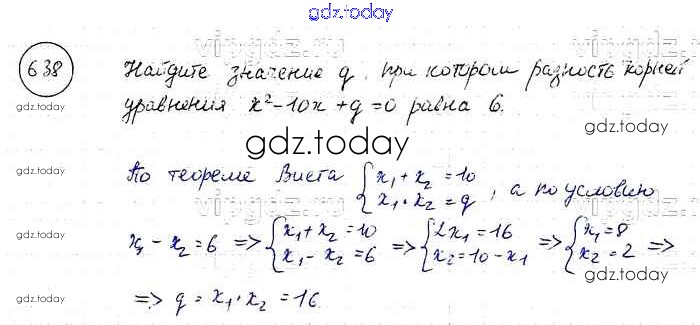 gdz.today
638 Найдите значение q, при котором разность корней
gdz.today
уравнения x²-10x+q=0 равна 6.
gdz.today
gdz.today
gdz.today
По теореме Виета {x₁+x₂=10 x₁·x₂=q, а по условию
gdz.today
x₁-x₂=6 => {x₁+x₂=10 x₁-x₂=6 => {2x₁=16 x₂=10-x₁ => {x₁=8 x₂=2 =>
gdz.today
=> q=x₁·x₂=16.
gdz.today
gdz.today